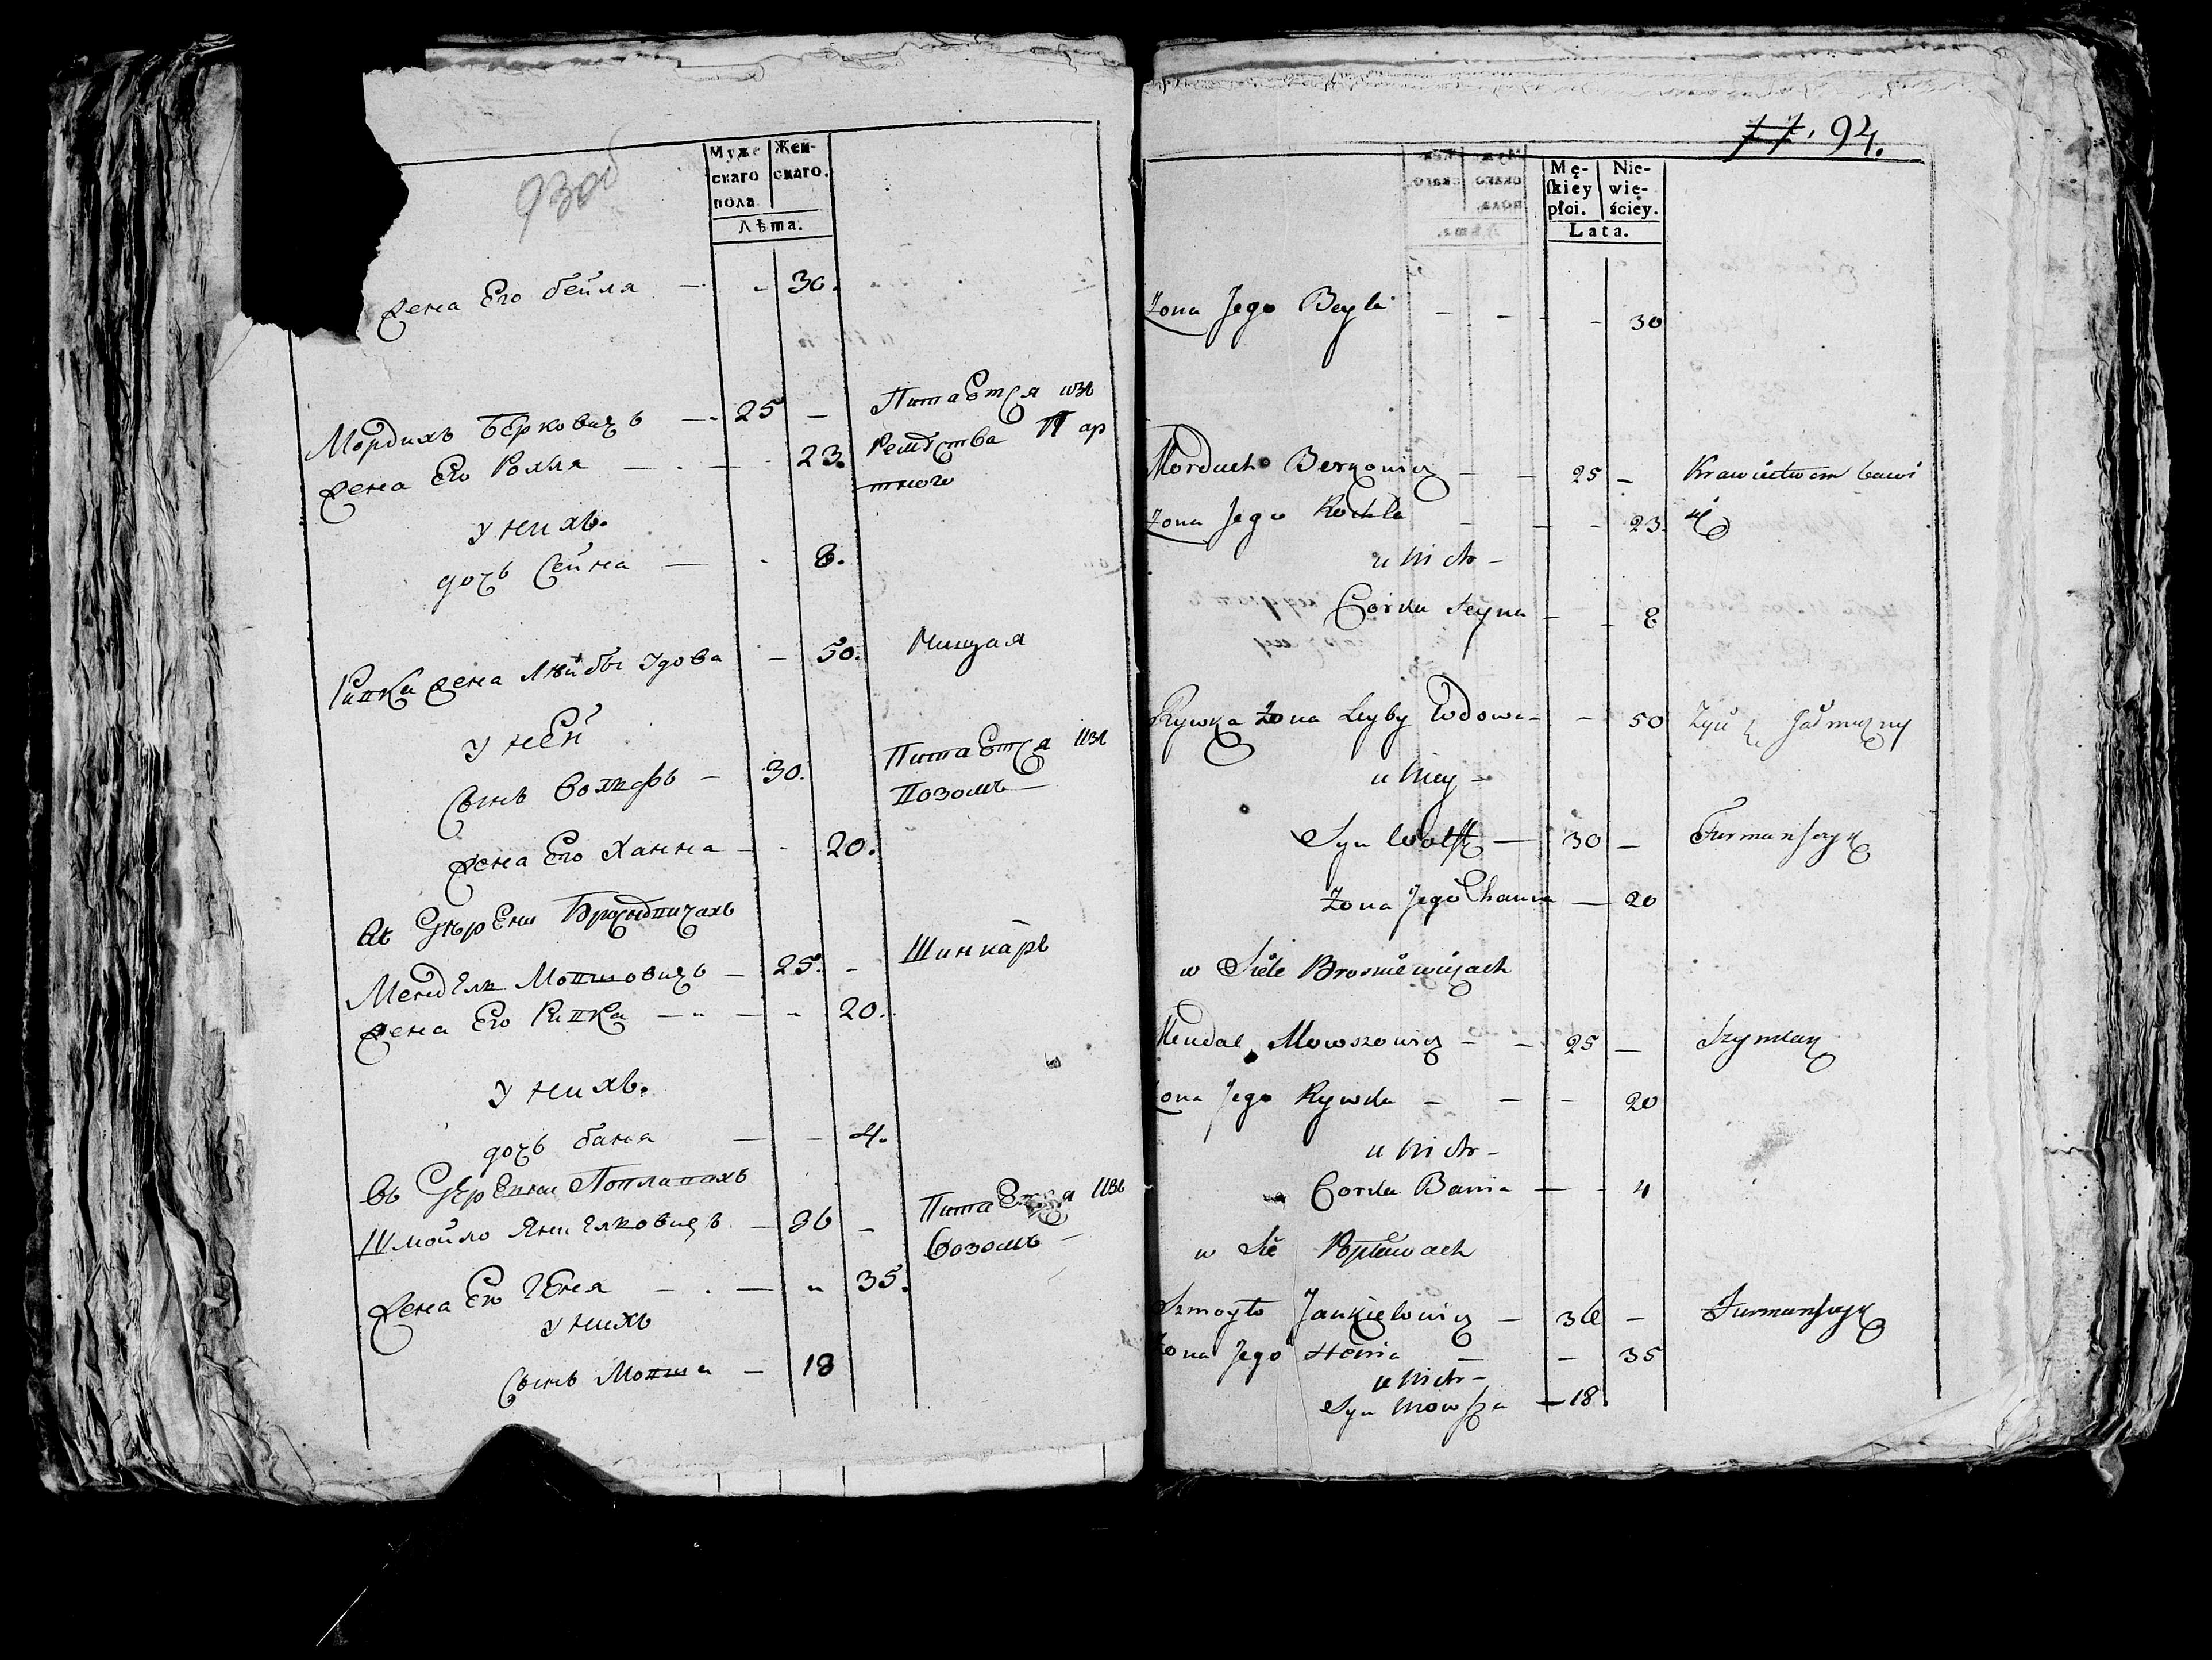 93об
Муже Жен-
скаго скаго.
пола
Лѣта.
Жена Его бейля — - 30.
Мордихъ Берковичъ — 25 —
Питается изъ
Жена Его Рохля — . — . 23.
Ремества
тного
у нихъ.
дочь Сейна — - 8.
Ривка жена Лейбы вдова — 50.
Нищая
у ней
Сынъ Вольфъ — 30.
Питается изъ
Возомъ —
Жена Его Ханна — - 20.
въ
Мендель Мовшовичъ — 25. -
Шинкарь
Жена Его Ривка — " — " 20.
у нихъ.
дочь баня — — 4.
въ Поплавахъ
Шмойло Янкелковичъ — 36 —
Питается изъ
Возомъ —
Жена Его Геня — . — " 35.
у нихъ
Сынъ Мовша — 18
77. 94.
Mę- Nie-
skiey wie-
płci. ściey.
Lata.
Zona Jego Beyla — — — - 30
Morduch Berkowicz — — 25 —
Krawiectwem bawi
się
Zona Jego Rochla — — - 23.
u Nich —
Corka Seyna — - 8
Rywka Zona Leyby Wdowa — - 50
Zyie z Jałmuzny
u Niey —
Syn Wolff — 30 —
Furmanszczyk
Zona Jego Chania — 20
w Siele Brosniewiczach
Mendal Mowszowicz — — 25 —
Szynkarz
Zona Jego Rywka — — - 20
u Nich —
Corka Bania — - 4
w Sie Popławach
Szmoyło Jankielowicz — 36 —
Furmanszczyk
Zona Jego Henia — — 35
u Nich —
Syn Mowsza — 18.